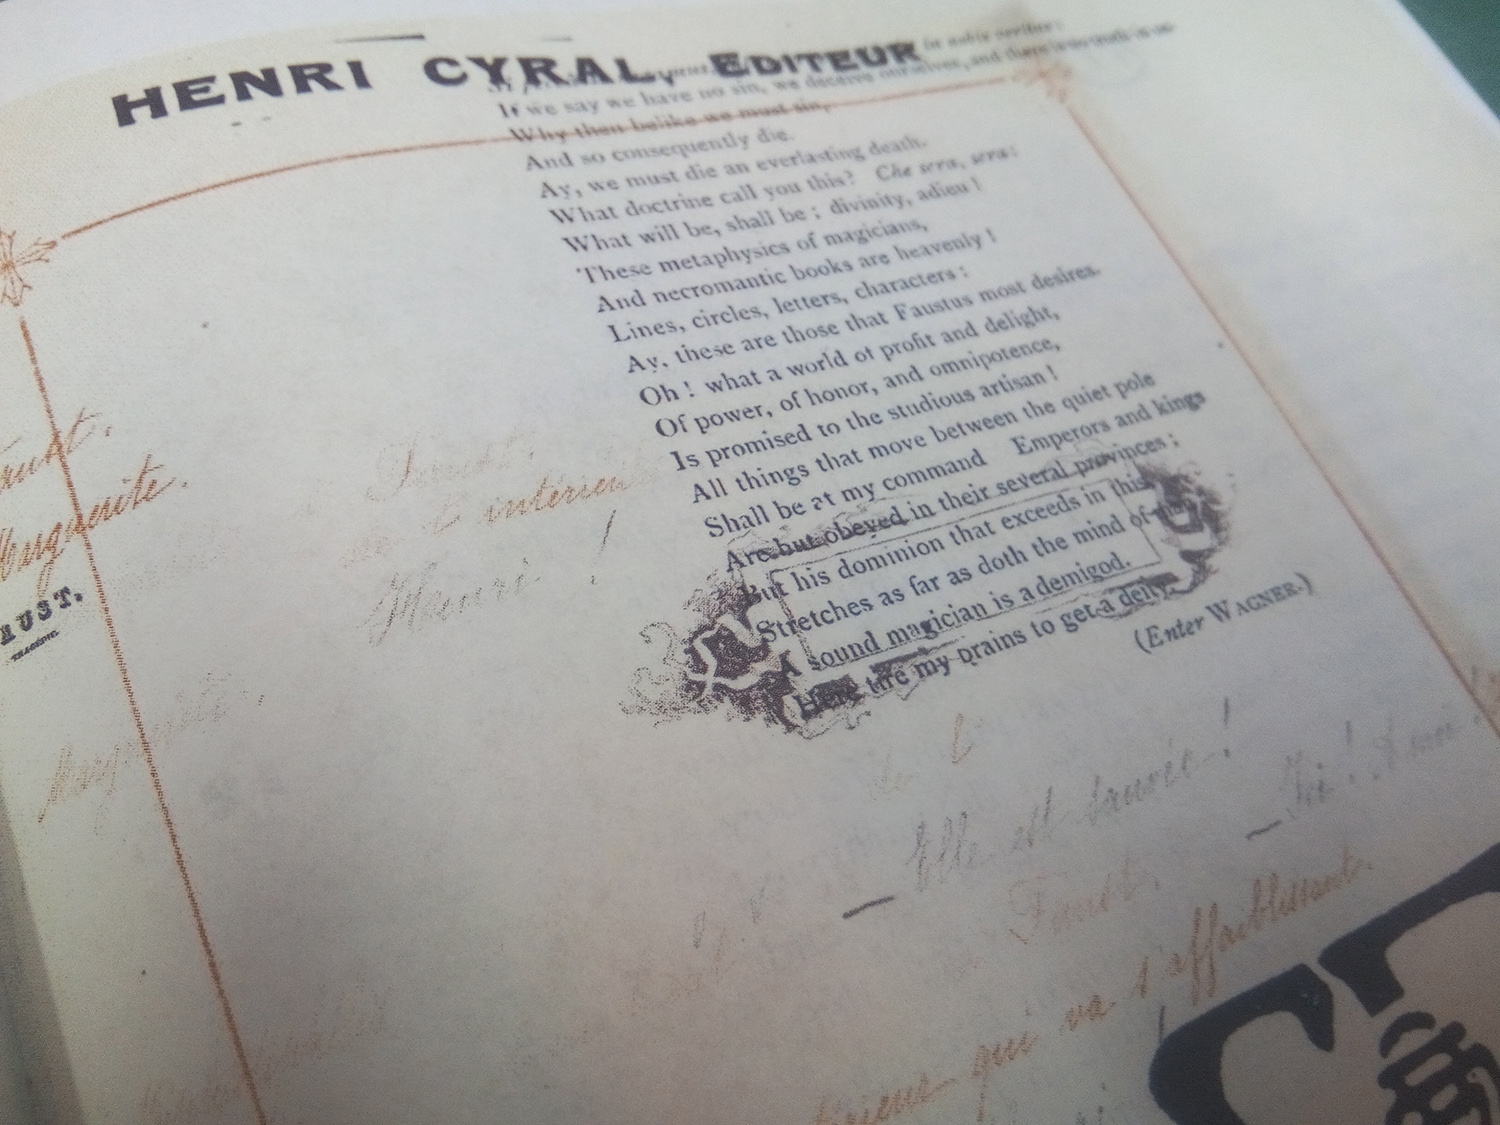 HENRI CYRAL, EDITEUR
in nobis veritas:
If we say we have no sin, we deceive ourselves, and there is no truth in us.
Why then belike we must sin,
And so consequently die.
Ay, we must die an everlasting death.
What doctrine call you this? Che sera, sera:
What will be, shall be; divinity, adieu!
These metaphysics of magicians,
And necromantic books are heavenly!
Lines, circles, letters, characters:
Ay, these are those that Faustus most desires.
Oh! what a world of profit and delight,
Of power, of honor, and omnipotence,
Is promised to the studious artisan!
All things that move between the quiet pole
Shall be at my command Emperors and kings
Are but obeyed in their several provinces;
But his dominion that exceeds in this
Stretches as far as doth the mind of
A sound magician is a demigod.
Here tire my brains to get a deity.
(Enter WAGNER.)
Marguerite.
AUST.
Faust.
intérieur
Henri!
Elle est sauvée!
Ici!
Faust.
qui va s'affaiblissant.